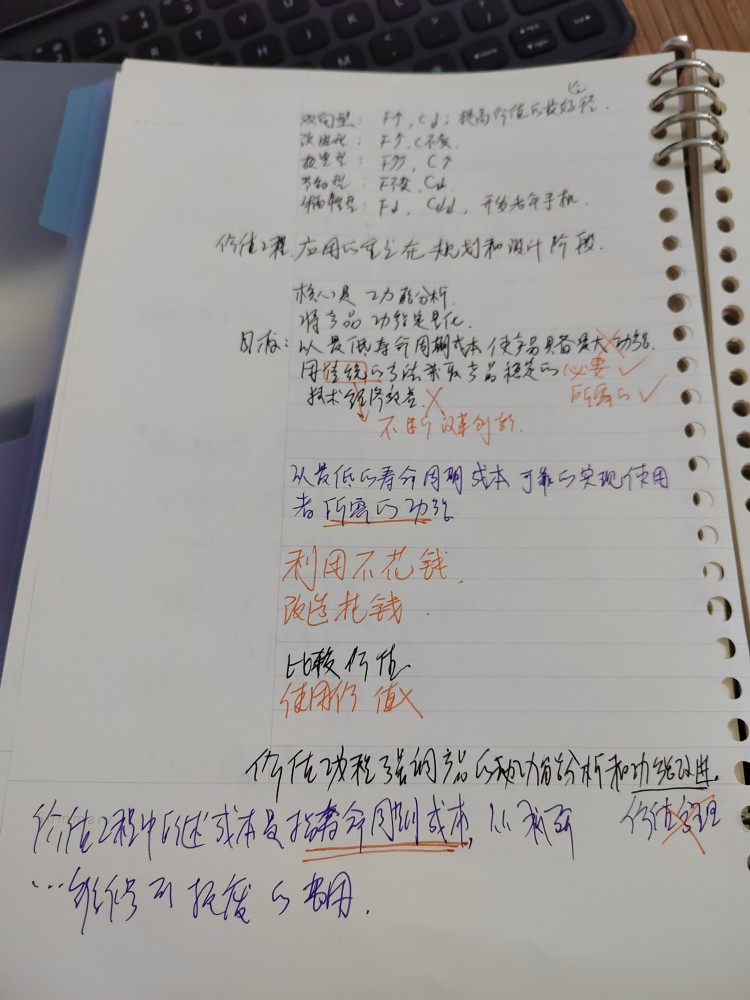 双向型：F↑，C↓；提高价值的最好途径.
改进型：F↑，C不变.
投资型：F↑↑，C↑
节约型：F不变，C↓.
牺牲型：F↓，C↓↓，开发老年手机.
价值工程应用的重点在规划和设计阶段.
核心是功能分析.
将产品功能定量化.
目标：以最低寿命周期成本使产品具备最大功能.
用传统的方法来取产品稳定的 必要✓
技术经济效益.✗ 所需的✓
不断改革创新.
以最低的寿命周期成本可靠的实现使用
者所需的功能
利用不花钱.
改造花钱.
比较价值.
使用价值✗
价值工程强调产品的功能分析和功能改进.
价值工程中所述成本是指寿命周期成本，从
价值管理
维修到报废的费用.